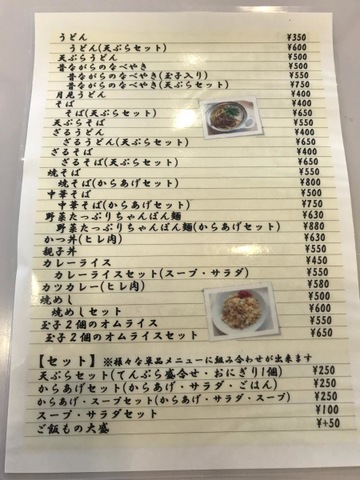 うどん ¥350
うどん(天ぷらセット) ¥600
天ぷらうどん ¥500
昔ながらのなべやき ¥500
昔ながらのなべやき(玉子入り) ¥550
昔ながらのなべやき(天ぷらセット) ¥750
月見うどん ¥400
そば ¥400
そば(天ぷらセット) ¥650
天ぷらそば ¥550
ざるうどん ¥400
ざるうどん(天ぷらセット) ¥650
ざるそば ¥400
ざるそば(天ぷらセット) ¥650
焼そば ¥550
焼そば(からあげセット) ¥800
中華そば ¥500
中華そば(からあげセット) ¥750
野菜たっぷりちゃんぽん麺 ¥630
野菜たっぷりちゃんぽん麺(からあげセット) ¥880
かつ丼(ヒレ肉) ¥630
親子丼 ¥550
カレーライス ¥450
カレーライスセット(スープ・サラダ) ¥550
カツカレー(ヒレ肉) ¥580
焼めし ¥500
焼めしセット ¥600
玉子2個のオムライス ¥550
玉子2個のオムライスセット ¥650
【セット】 ※様々な単品メニューに組み合わせが出来ます
天ぷらセット(てんぷら盛合せ・おにぎり1個) ¥250
からあげセット(からあげ・サラダ・ごはん) ¥250
からあげ・スープセット(からあげ・サラダ・スープ) ¥250
スープ・サラダセット ¥100
ご飯もの大盛 ¥+50